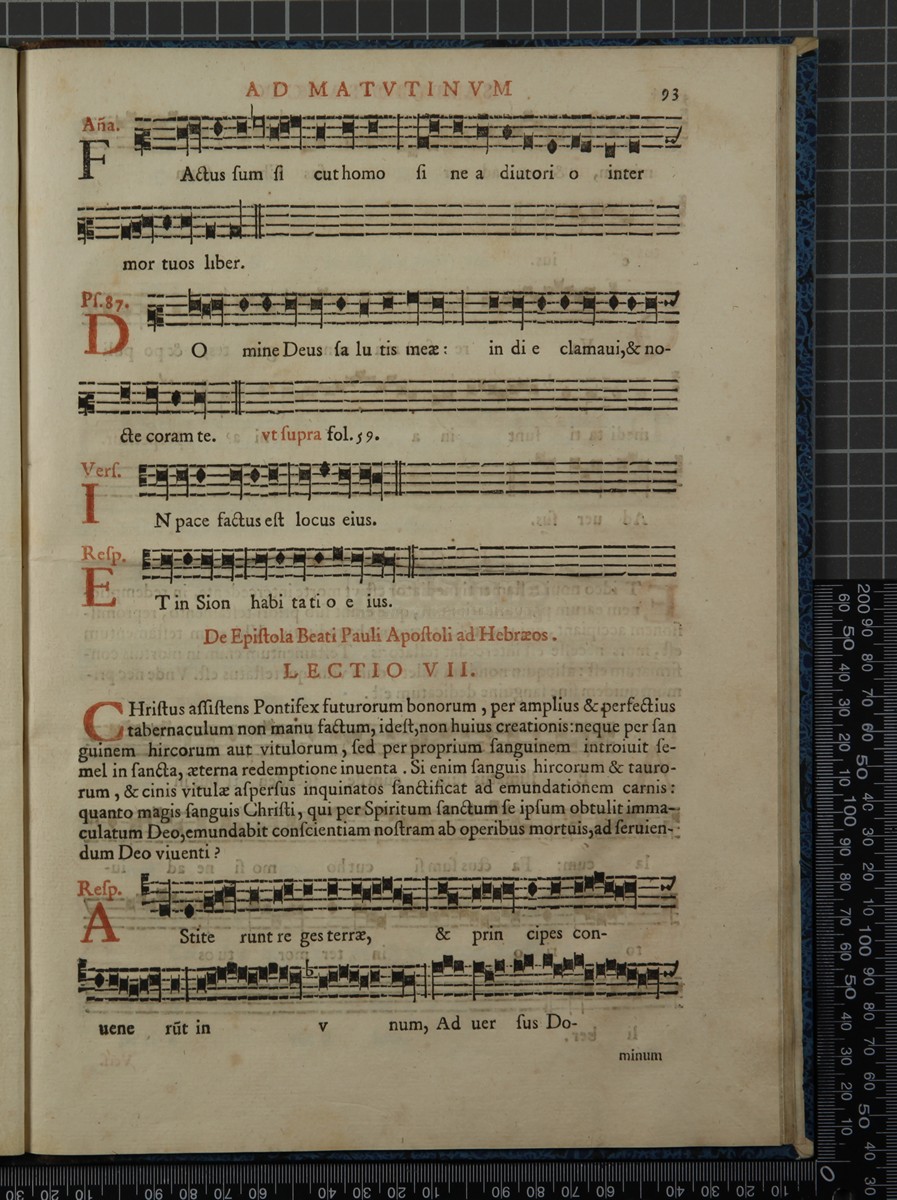 AD MATVTINVM
93
Aña.
FActus ſum ſi cut homo ſi ne a diutori o inter
mor tuos liber.
Pſ.87.
DO mine Deus ſa lu tis meæ: in di e clamaui,& no-
cte coram te. vt ſupra fol.59.
Verſ.
IN pace factus eſt locus eius.
Reſp.
ET in Sion habi tati o e ius.
De Epiſtola Beati Pauli Apoſtoli ad Hebræos.
LECTIO VII.
CHriſtus aſſiſtens Pontifex futurorum bonorum, per amplius & perfectius
tabernaculum non manu factum, ideſt,non huius creationis:neque per ſan
guinem hircorum aut vitulorum, ſed per proprium ſanguinem introiuit ſe-
mel in ſancta, æterna redemptione inuenta. Si enim ſanguis hircorum & tauro-
rum, & cinis vitulæ aſperſus inquinatos ſanctificat ad emundationem carnis:
quanto magis ſanguis Chriſti, qui per Spiritum ſanctum ſe ipſum obtulit imma-
culatum Deo,emundabit conſcientiam noſtram ab operibus mortuis,ad ſeruien-
dum Deo viuenti?
Reſp.
AStite runt re ges terræ, & prin cipes con-
uene rūt in v num, Ad uer ſus Do-
minum